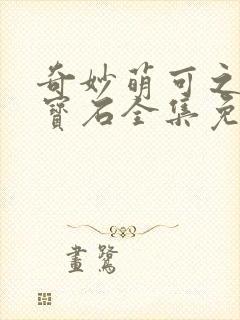 奇妙萌可之
寶石全集免
畫鷺